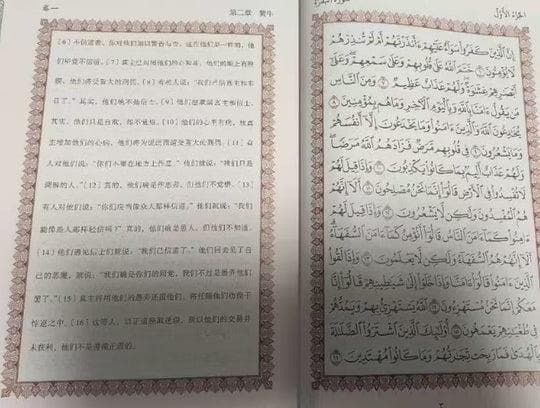 卷一
第二章 黄牛
[6]不信道者,你对他们加以警告与否,这在他们是一样的,他
们毕竟不信道。[7]真主已封闭他们的心和耳,他们的眼上有翳
膜,他们将受重大的刑罚。[8]有些人说:“我们已信真主和末
日了。”其实,他们绝不是信士。[9]他们想欺瞒真主和信士,
其实,他们只是自欺,却不觉悟。[10]他们的心里有病,故真
主增加他们的心病,他们将为说谎而遭受重大的刑罚。[11]有
人对他们说:“你们不要在地方上作恶。”他们就说:“我们只是
调解的人。”[12]真的,他们确是作恶者,但他们不觉悟。[13]
有人对他们说:“你们应当像众人那样信道。”他们就说:“我们
能像愚人那样轻信吗?”真的,他们确是愚人,但他们不知道。
[14]他们遇见信士们就说:“我们已信道了。”他们回去见了自
己的恶魔,就说:“我们确是你们的同党,我们不过是愚弄他们
罢了。”[15]真主将用他们的愚弄还报他们,将任随他们彷徨于
悖逆之中。[16]这等人,以正道换取迷误,所以他们的交易并
未获利,他们不是遵循正道的。
الجزء الأول
إِنَّ الَّذِينَ كَفَرُوا سَوَاءٌ عَلَيْهِمْ ءَأَنذَرْتَهُمْ أَمْ لَمْ تُنذِرْهُمْ
لَا يُؤْمِنُونَ ٦ خَتَمَ اللَّهُ عَلَىٰ قُلُوبِهِمْ وَعَلَىٰ سَمْعِهِمْ وَعَلَىٰ
أَبْصَارِهِمْ غِشَاوَةٌ وَلَهُمْ عَذَابٌ عَظِيمٌ ٧ وَمِنَ النَّاسِ
مَن يَقُولُ ءَامَنَّا بِاللَّهِ وَبِالْيَوْمِ الْآخِرِ وَمَا هُم بِمُؤْمِنِينَ ٨
يُخَادِعُونَ اللَّهَ وَالَّذِينَ ءَامَنُوا وَمَا يَخْدَعُونَ إِلَّا أَنفُسَهُمْ
وَمَا يَشْعُرُونَ ٩ فِي قُلُوبِهِم مَّرَضٌ فَزَادَهُمُ اللَّهُ مَرَضًا
وَلَهُمْ عَذَابٌ أَلِيمٌ بِمَا كَانُوا يَكْذِبُونَ ١٠ وَإِذَا قِيلَ لَهُمْ
لَا تُفْسِدُوا فِي الْأَرْضِ قَالُوا إِنَّمَا نَحْنُ مُصْلِحُونَ ١١ أَلَا إِنَّهُمْ
هُمُ الْمُفْسِدُونَ وَلَٰكِن لَّا يَشْعُرُونَ ١٢ وَإِذَا قِيلَ لَهُمْ
ءَامِنُوا كَمَا ءَامَنَ النَّاسُ قَالُوا أَنُؤْمِنُ كَمَا ءَامَنَ السُّفَهَاءُ
أَلَا إِنَّهُمْ هُمُ السُّفَهَاءُ وَلَٰكِن لَّا يَعْلَمُونَ ١٣ وَإِذَا لَقُوا
الَّذِينَ ءَامَنُوا قَالُوا ءَامَنَّا وَإِذَا خَلَوْا إِلَىٰ شَيَاطِينِهِمْ قَالُوا إِنَّا
مَعَكُمْ إِنَّمَا نَحْنُ مُسْتَهْزِءُونَ ١٤ اللَّهُ يَسْتَهْزِئُ بِهِمْ وَيَمُدُّهُمْ
فِي طُغْيَانِهِمْ يَعْمَهُونَ ١٥ أُولَٰئِكَ الَّذِينَ اشْتَرَوُا الضَّلَالَةَ
بِالْهُدَىٰ فَمَا رَبِحَت تِّجَارَتُهُمْ وَمَا كَانُوا مُهْتَدِينَ ١٦